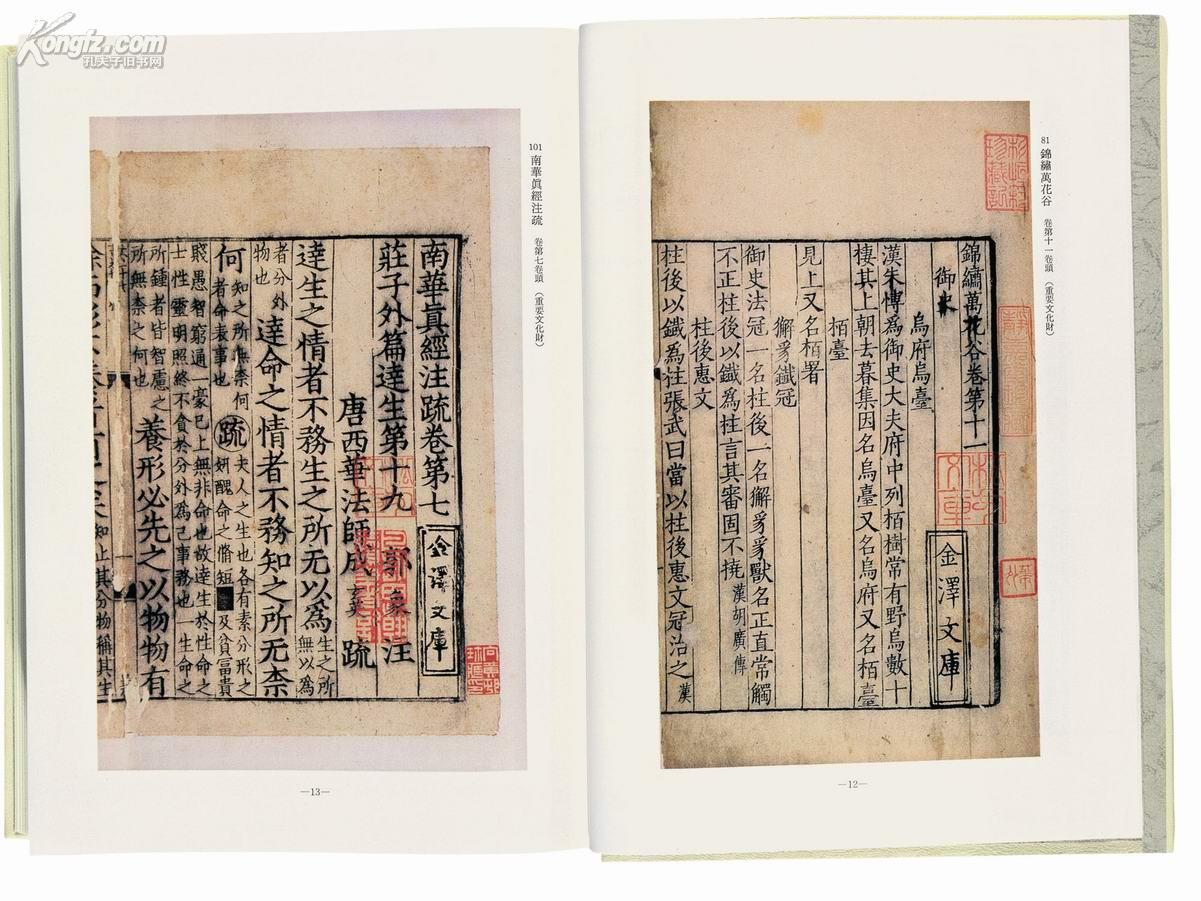 Kongfz.com
孔夫子旧书网
81 錦繡萬花谷 卷第十一卷頭 (重要文化財)
錦繡萬花谷卷第十一
御史
烏府烏臺
漢朱博為御史大夫府中列栢樹常有野烏數十
棲其上朝去暮集因名烏臺又名烏府又名栢臺
栢臺
見上又名栢署
獬豸鐵冠
御史法冠一名柱後一名獬豸豸獸名正直常觸
不正柱後以鐵為柱言其審固不撓漢胡廣傳
柱後惠文
柱後以鐵為柱張武曰當以柱後惠文冠治之漢
金澤文庫
—12—
101 南華眞經注疏 卷第七卷頭 (重要文化財)
南華真經注疏卷第七
莊子外篇達生第十九 郭象注
唐西華法師成玄英疏
達生之情者不務生之所无以為生之所無以為
者分外物也達命之情者不務知之所无柰
何知之所無柰何者命表事也疏夫人之生也各有素分形之妍醜命之脩短及貧富貴
賤愚智窮通一豪已上無非命也故達生於性命之
士性靈明照終不貪於分外為己事務也一生命之
所鍾者皆智慮之所無柰之何也養形必先之以物物有
知止其分物稱其生
金澤文庫
—13—